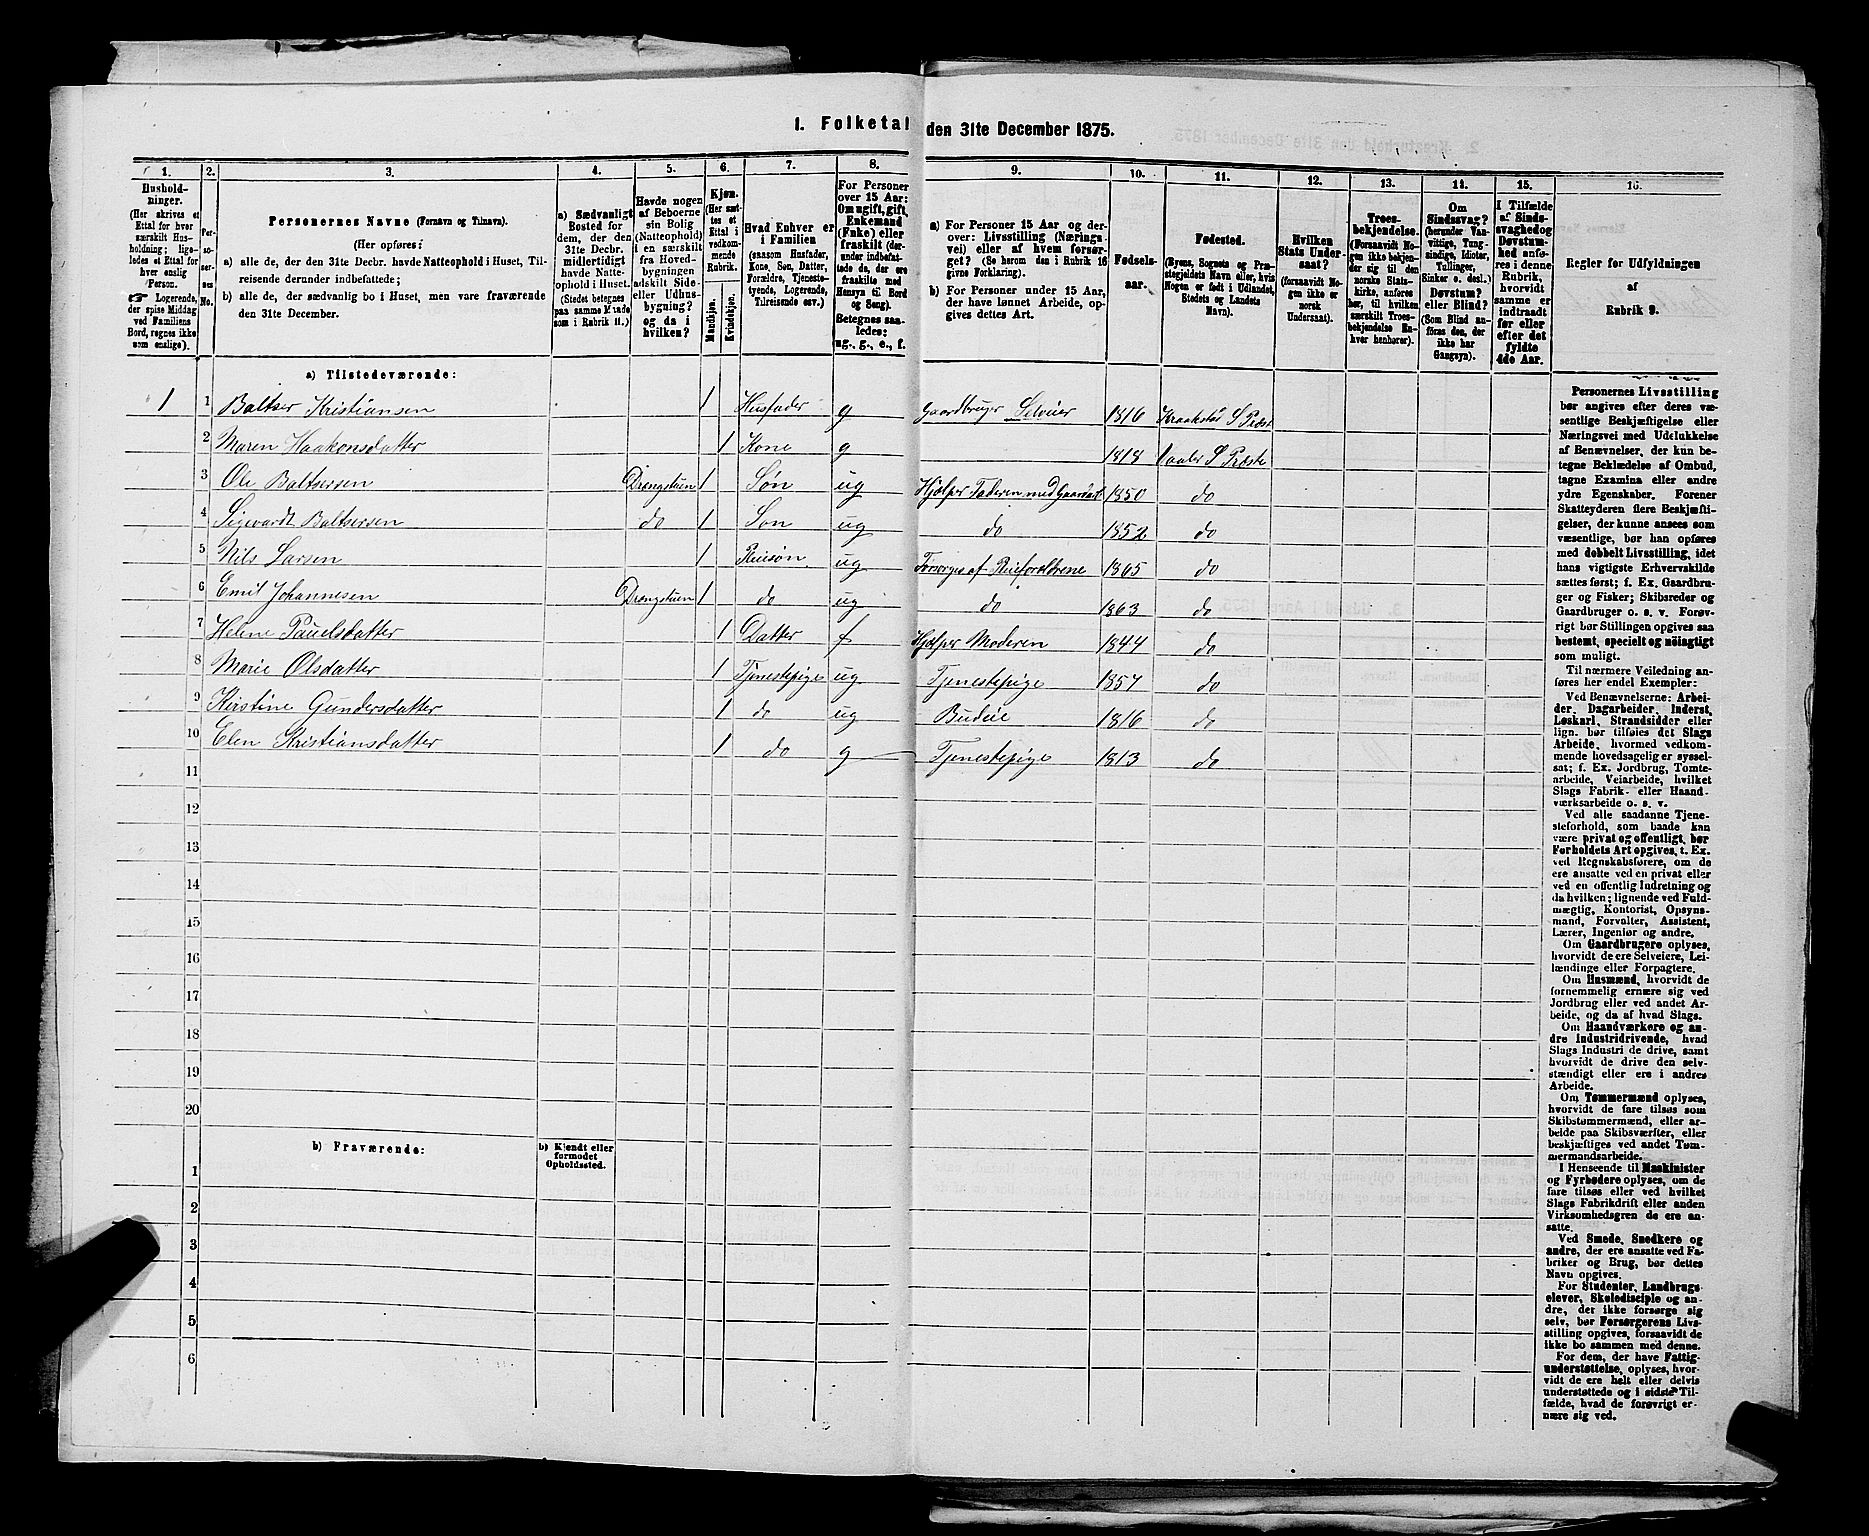 1. Folketal den 31te December 1875.
1.
2.
3.
4.
5.
6.
7.
8.
9.
10.
11.
12.
13.
14.
15.
16.
Hushold-
ninger.
(Her skrives et
Ettal for hver
særskilt Hus-
holdning; lige-
ledes et Ettal for
hver enslig
Person.
☛ Logerende,
der spise Middag
ved Familiens
Bord, regnes ikke
som enslige).
Per-
so-
ner-
nes
No.
Personernes Navne (Fornavn og Tilnavn).
(Her opføres:
a) alle de, der den 31te Decbr. havde Natteophold i Huset, Til-
reisende derunder indbefattede;
b) alle de, der sædvanlig bo i Huset, men vare fraværende
den 31te December.
a) Sædvanligt
Bosted for
dem, der den
31te Decbr.
midlertidigt
havde Natte-
ophold i Huset.
(Stedet betegnes
paa samme Maade
som i Rubrik 11.)
Havde nogen
af Beboerne
sin Bolig
(Natteophold)
i en særskilt
fra Hoved-
bygningen
adskilt Side-
eller Udhus-
bygning?
og da i
hvilken?
Kjøn.
(Her sæt-
tes et
Ettal i
vedkom-
mende
Rubrik.
Mandkjøn.
Kvindekjøn.
Hvad Enhver er
i Familien
(saasom Husfader,
Kone, Søn, Datter,
Forældre, Tjeneste-
tyende, Logerende,
Tilreisende osv.)
For Personer
over 15 Aar:
Om ugift, gift,
Enkemand
(Enke) eller
fraskilt (der-
under indbefat-
tede de, der ere
fraskilte med
Hensyn til Bord
og Seng).
Betegnes saa-
ledes:
ug., g., e., f.
a) For Personer 15 Aar og der-
over: Livsstilling (Nærings-
vei) eller af hvem forsør-
get? (Se herom den i Rubrik 16
givne Forklaring).
b) For Personer under 15 Aar,
der have lønnet Arbeide, op-
gives dettes Art.
Fødsels-
aar.
Fødested.
(Byens, Sognets og Præ-
stegjeldets Navn eller, hvis
Nogen er født i Udlandet,
Stedets og Landets
Navn).
Hvilken
Stats Under-
saat?
(forsaavidt No-
gen ikke er
norsk
Undersaat).
Troes-
bekjendelse.
(Forsaavidt No-
gen ikke bekjen-
der sig til den
norske Stats-
kirke, anføres
her, til hvilken
særskilt Troes-
bekjendelse En-
hver henhører).
Om
Sindssvag?
(herunder Van-
vittige, Tung-
sindige, Idioter,
Tullinger,
Sinker o. desl.)
Døvstum?
eller Blind?
(Som Blind an-
føres den, der
ikke har
Gangsyn).
I Tilfælde
af Sinds-
svaghed og
Døvstum-
hed anfø-
res i denne
Rubrik,
hvorvidt
samme er
indtraadt
før eller
efter det
fyldte
4de Aar.
Regler for Udfyldningen
af
Rubrik 9.
a) Tilstedeværende:
1 1 Baltser Kristiansen 1 Husfader g Gaardbruger Selveier 1816 Kraakstad S Præst
2 Maren Haakonsdatter 1 Kone g 1818 Vaaler S Præste
3 Ole Baltsersen Drængstuen 1 Søn ug Hjælper Faderen med Gaardast 1850 do
4 Sigevardt Baltsersen do 1 Søn ug do 1852 do
5 Nils Larsen 1 Pleiesøn ug Forsørges af Pleieforældrene 1865 do
6 Emil Johannesen Drængstuen 1 do ug do 1863 do
7 Helene Pauelsdatter 1 Datter f Hjælper Moderen 1844 do
8 Marie Olsdatter 1 Tjenestepige ug Tjenestepige 1857 do
9 Kirstine Gundersdatter 1 do ug Budeie 1816 do
10 Elen Kristiansdatter 1 do g Tjenestepige 1813 do
11
12
13
14
15
16
17
18
19
20
b) Fraværende:
b) Kjendt eller
formodet
Opholdssted.
1
2
3
4
5
6
Personernes Livsstilling
bør angives efter deres væ-
sentlige Beskjæftigelse eller
Næringsvei med Udelukkelse
af Benævnelser, der kun be-
tegne Beklædelse af Ombud,
tagne Examina eller andre
ydre Egenskaber. Forener
Skatteyderen flere Beskjæfti-
gelser, der kunne ansees som
væsentlige, bør han opføres
med dobbelt Livsstilling, idet
hans vigtigste Erhvervskilde
sættes først; f. Ex. Gaardbru-
ger og Fisker; Skibsreder og
Gaardbruger o. s. v. Forøv-
rigt bør Stillingen opgives saa
bestemt, specielt og nøiagtigt
som muligt.
Til nærmere Veiledning an-
føres her endel Exempler:
Ved Benævnelserne: Arbei-
der, Dagarbeider, Inderst,
Løskarl, Strandsidder eller
lign. bør tilføies det Slags
Arbeide, hvormed vedkom-
mende hovedsagelig er syssel-
sat; f. Ex. Jordbrug, Tomte-
arbeide, Veiarbeide, hvilket
Slags Fabrik- eller Haand-
værksarbeide o. s. v.
Ved alle saadanne Tjene-
steforhold, som baade kan
være privat og offentligt, bør
Forholdets Art opgives, t. Ex.
ved Regnskabsførere, om de
ere ansatte ved en privat eller
ved en offentlig Indretning og
da hvilken; lignende ved Fuld-
mægtig, Kontorist, Opsyns-
mand, Forvalter, Assistent,
Lærer, Ingeniør og andre.
Om Gaardbrugere oplyses,
hvorvidt de ere Selveiere, Lei-
lændinge eller Forpagtere.
Om Husmænd, hvorvidt de
fornemmelig ernære sig ved
Jordbrug eller ved andet Ar-
beide, og da af hvad Slags.
Om Haandværkere og an-
dre Industridrivende, hvad
Slags Industri de drive, samt
hvorvidt de drive den selv-
stændigt eller ere i andres
Arbeide.
Om Tømmermænd oplyses,
hvorvidt de fare tilsøs som
Skibstømmermænd, eller ar-
beide paa Skibsværfter, eller
beskjæftiges ved andet Tøm-
mermandsarbeide.
I Henseende til Maskinister
og Fyrbødere oplyses, om de
fare tilsøs eller ved hvilket
Slags Fabrikdrift eller anden
Virksomhedsgren de ere an-
satte.
Ved Smede, Snedkere og
andre, der ere ansatte ved Fa-
briker og Brug, bør dettes
Navn opgives.
For Studenter, Landbrugs-
elever, Skoledisciple og an-
dre, der ikke forsørge sig
selv, bør Forsørgerens Livs-
stilling opgives, forsaavidt de
ikke bo sammen med denne.
For dem, der have Fattig-
understøttelse, oplyses, hvor-
vidt de ere helt eller delvis
understøttede og i sidste Til-
fælde, hvad de forøvrigt er-
nære sig ved.